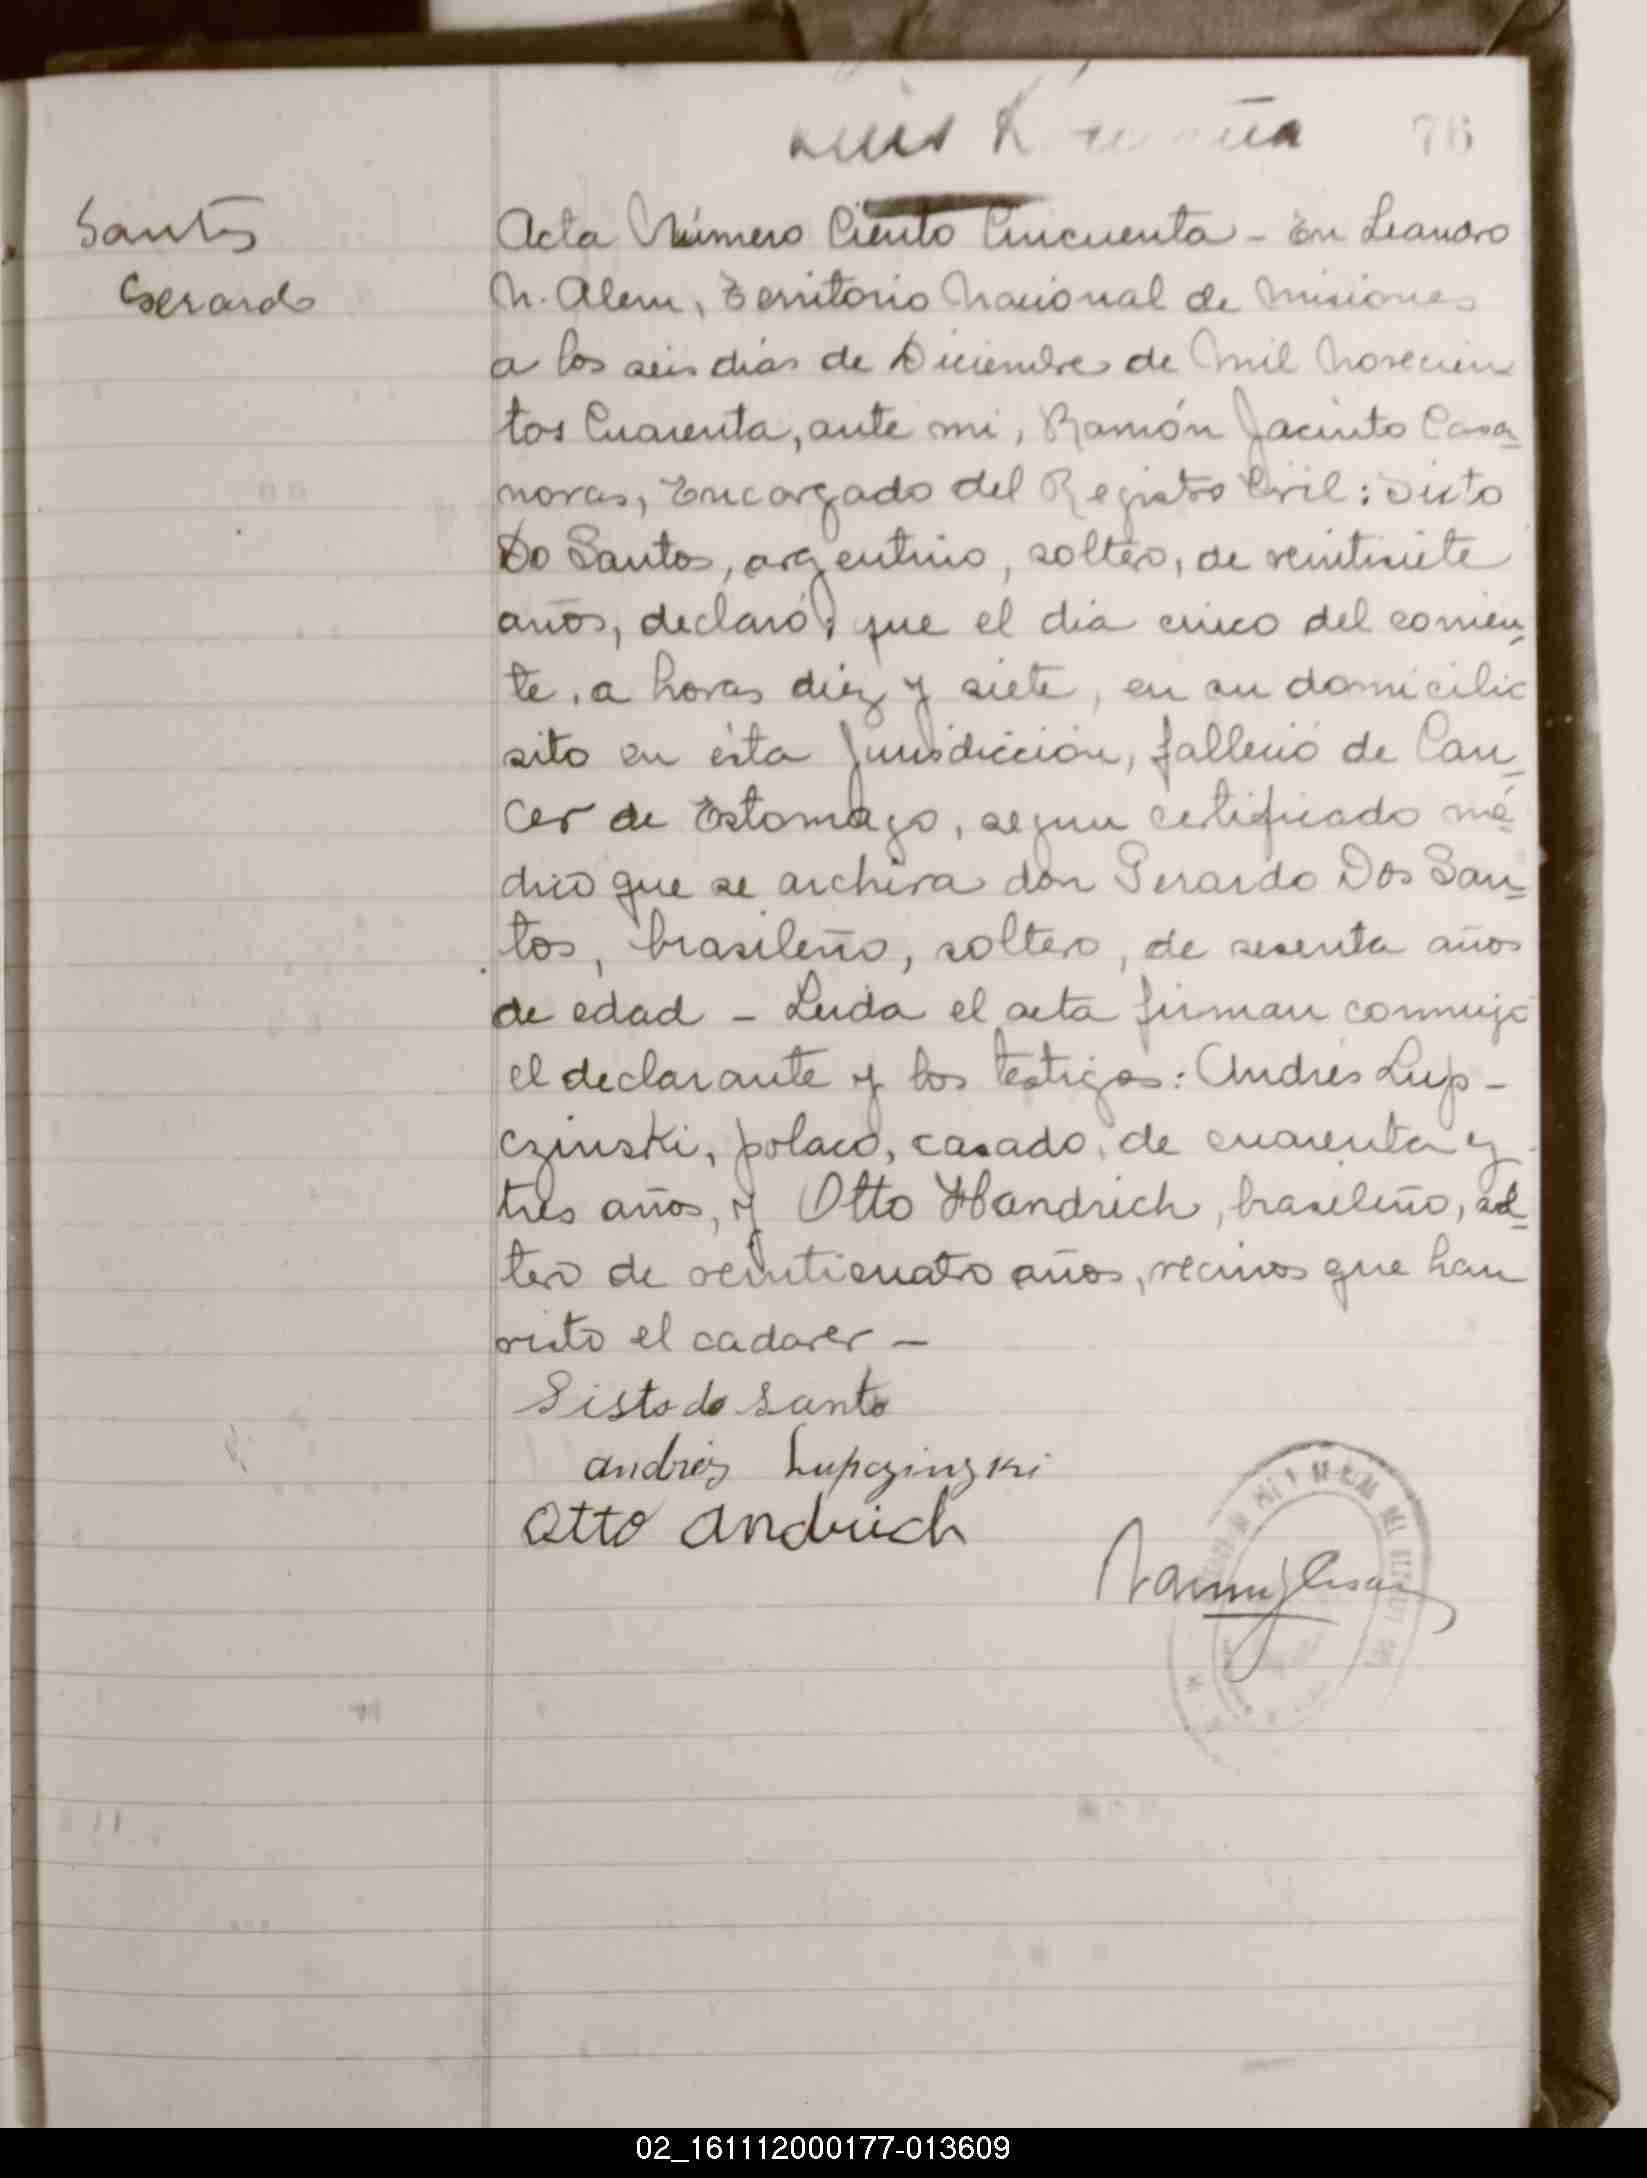 Luis
76
Santos
Gerardo
Acta Número Ciento Cincuenta - En Leandro
N. Alem, Territorio Nacional de Misiones
a los seis dias de Diciembre de Mil Novecien
tos Cuarenta, ante mi, Ramón Jacinto Casa-
novas, Encargado del Registro Civil: Sixto
Do Santos, argentino, soltero, de veintisiete
años, declaró: que el dia cinco del corrien-
te, a horas diez y siete, en su domicilio
sito en ésta Jurisdicción, falleció de Can-
cer de Estomago, segun certificado mé-
dico que se archiva don Gerardo Dos San-
tos, brasileño, soltero, de sesenta años
de edad - Leida el acta firman conmigo
el declarante y los testigos: Andrés Lup-
czinski, polaco, casado, de cuarenta y
tres años, y Otto Handrich, brasileño, sol-
tero de veinticuatro años, vecinos que han
visto el cadaver -
Sisto do Santo
andrés Lupczinzki
Otto andrich
02_161112000177-013609